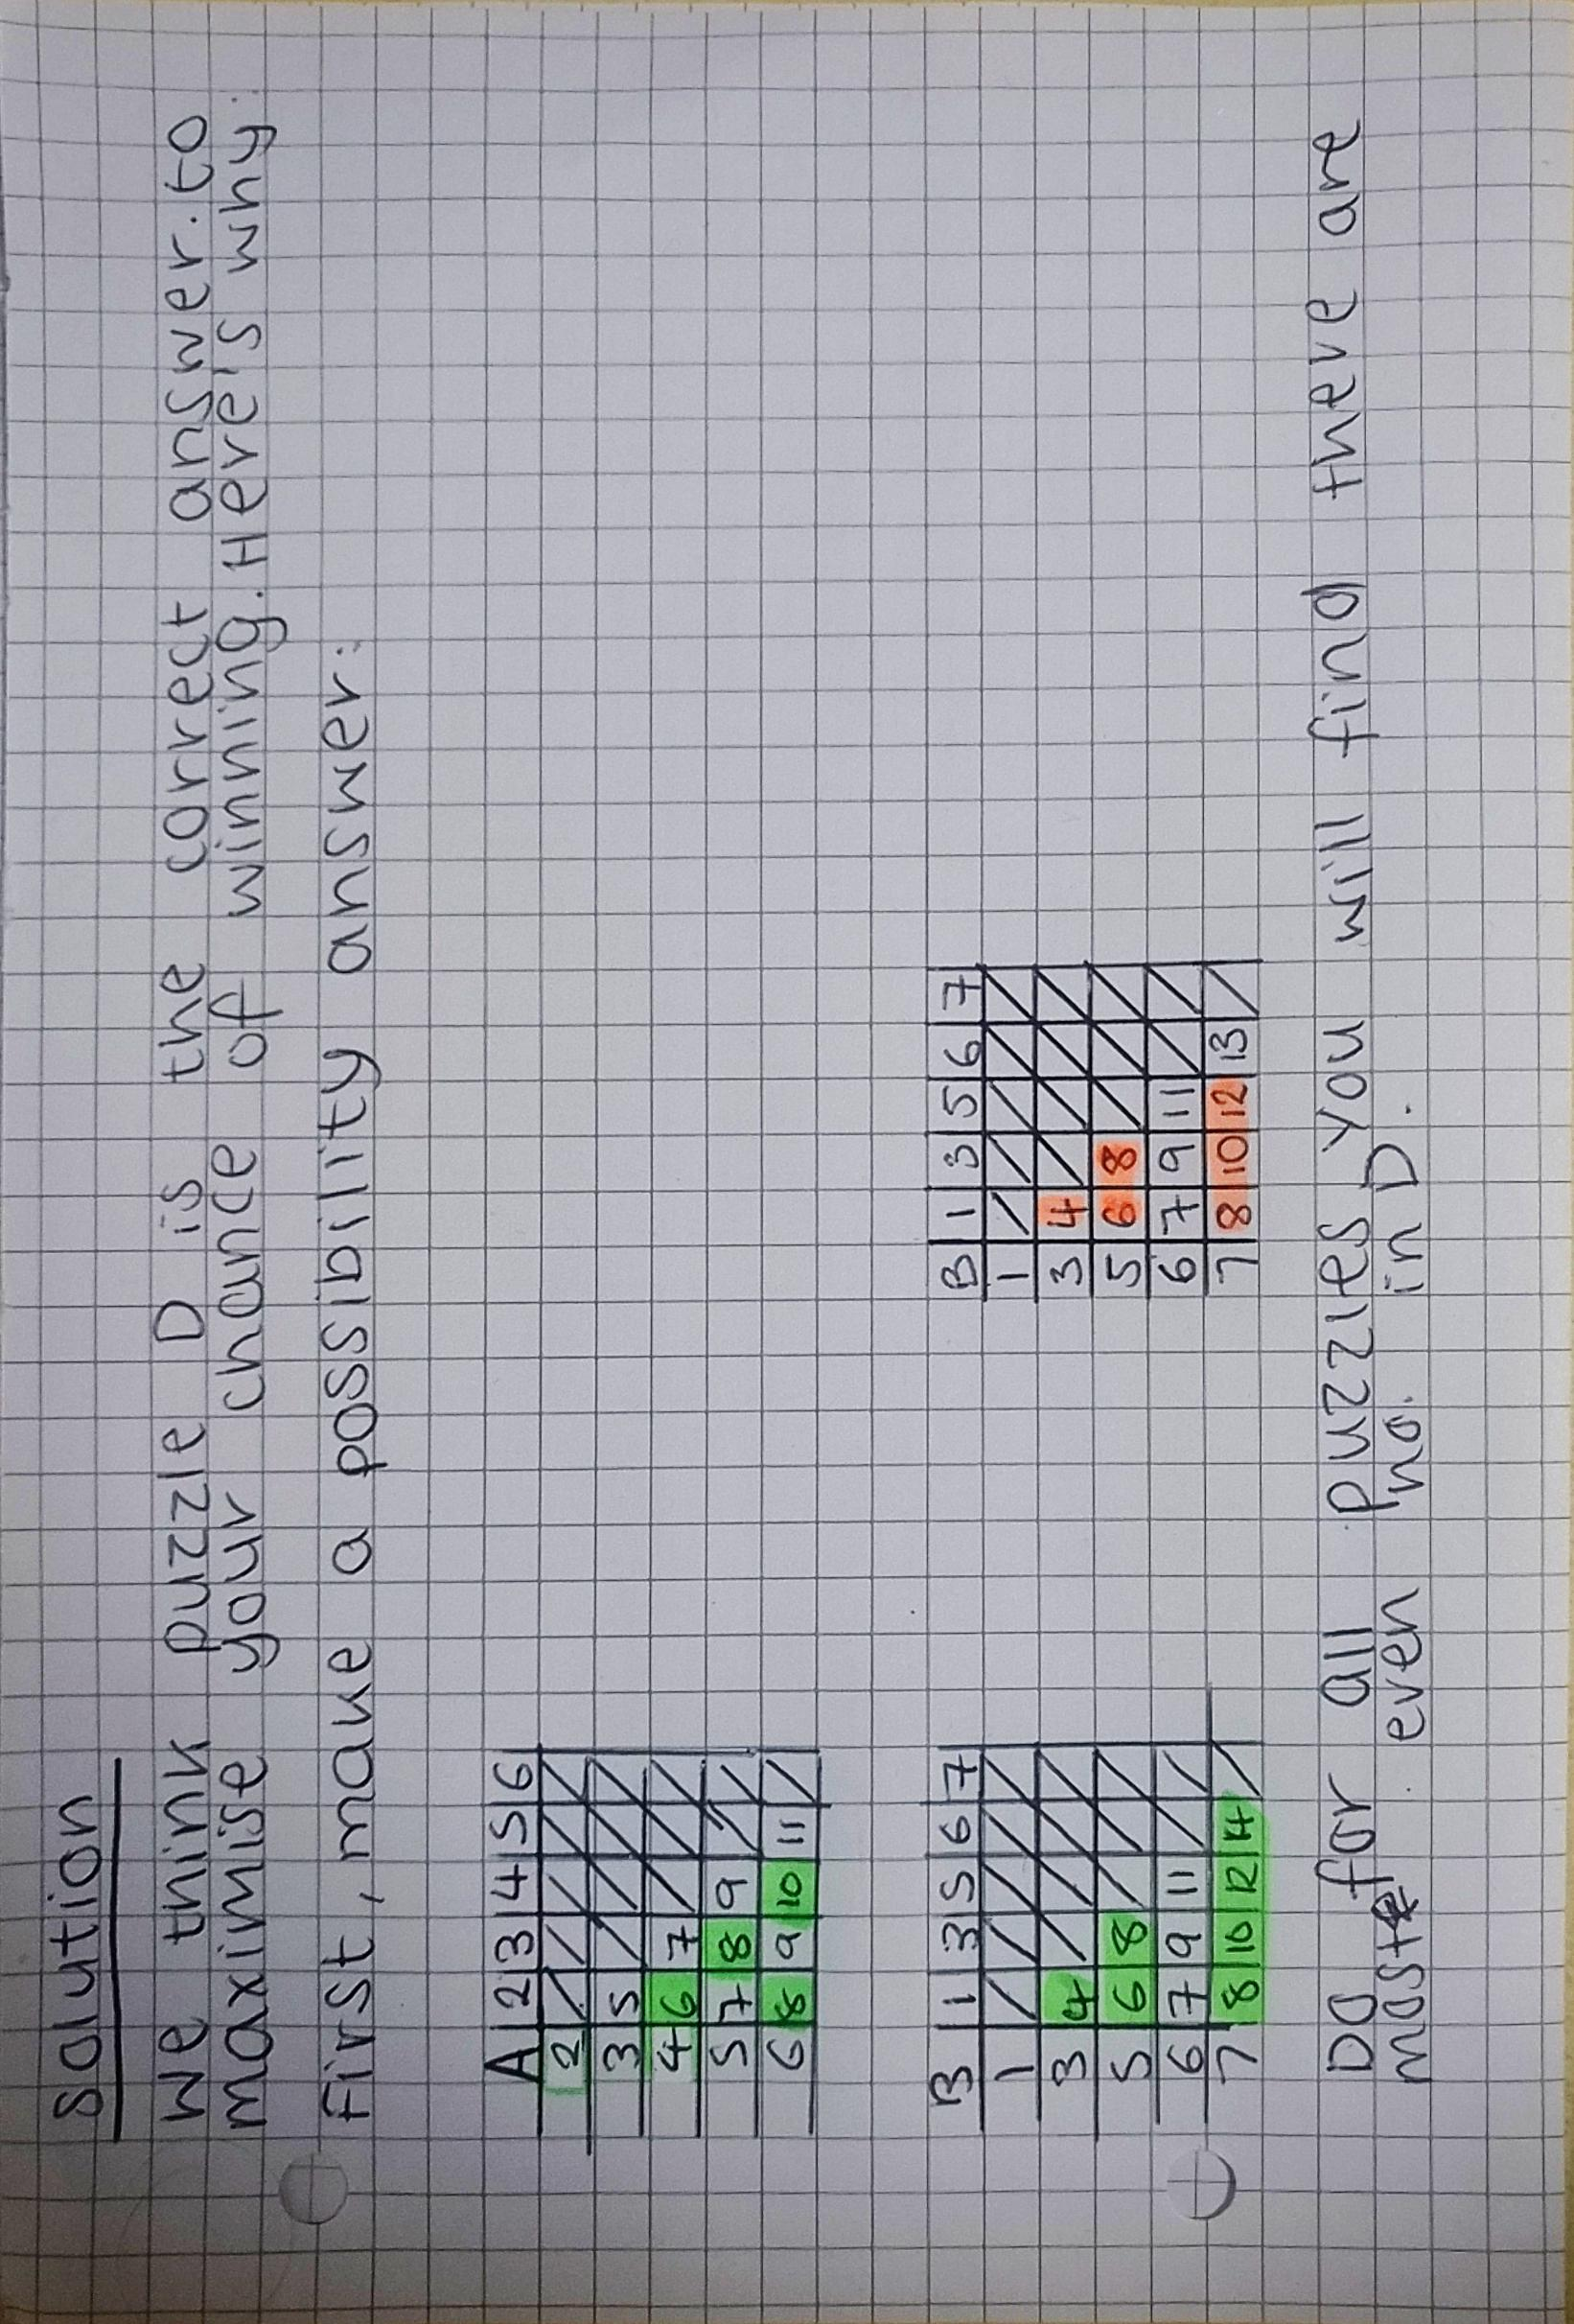 Solution
We think puzzle D is the correct answer.to
maximise your chance of winning.Here's why.
First, make a possibility answer:
A 2 3 4 5 6
2 / / / / /
3 5 / / / /
4 6 7 / / /
5 7 8 9 / /
6 8 9 10 11 /
B 1 3 5 6 7
1 / / / / /
3 4 / / / /
5 6 8 / / /
6 7 9 11 / /
7 8 10 12 14 /
B 1 3 5 6 7
1 / / / / /
3 4 / / / /
5 6 8 / / /
6 7 9 11 / /
7 8 10 12 13 /
Do for all puzzles you will find there are
most even no. in D.